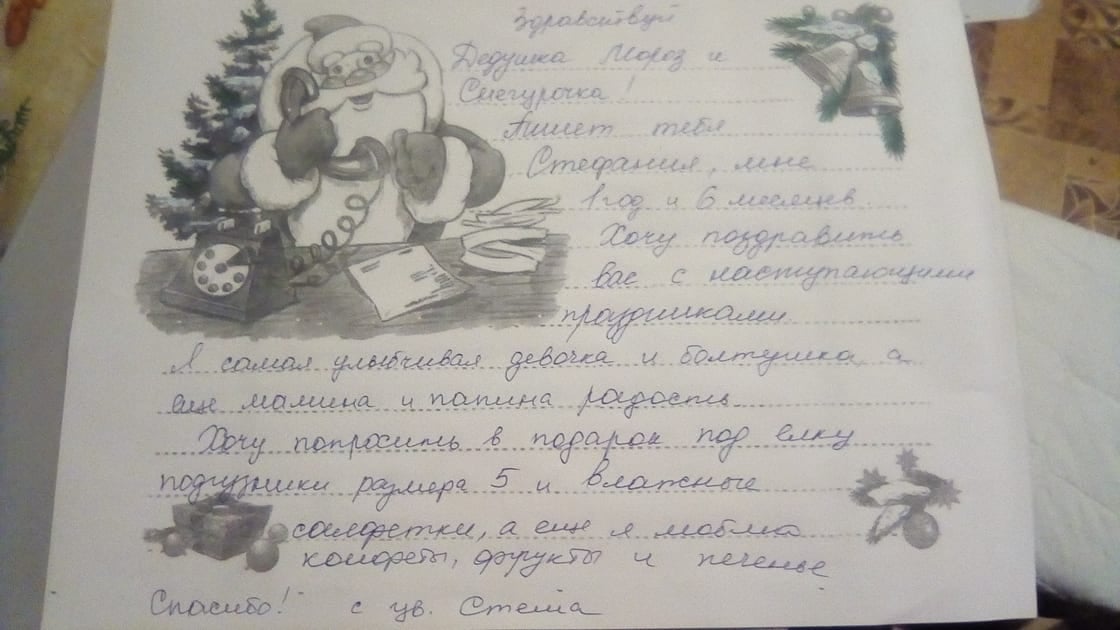 Здравствуй
Дедушка Мороз и
Снегурочка!
Пишет тебе
Стефания, мне
1 год и 6 месяцев.
Хочу поздравить
вас с наступающими
праздниками.
Я самая улыбчивая девочка и болтушка, а
еще мамина и папина радость.
Хочу попросить в подарок под елку
подгузники размера 5 и влажные
салфетки, а еще я люблю
конфеты, фрукты и печенье
Спасибо! с ув. Стеша